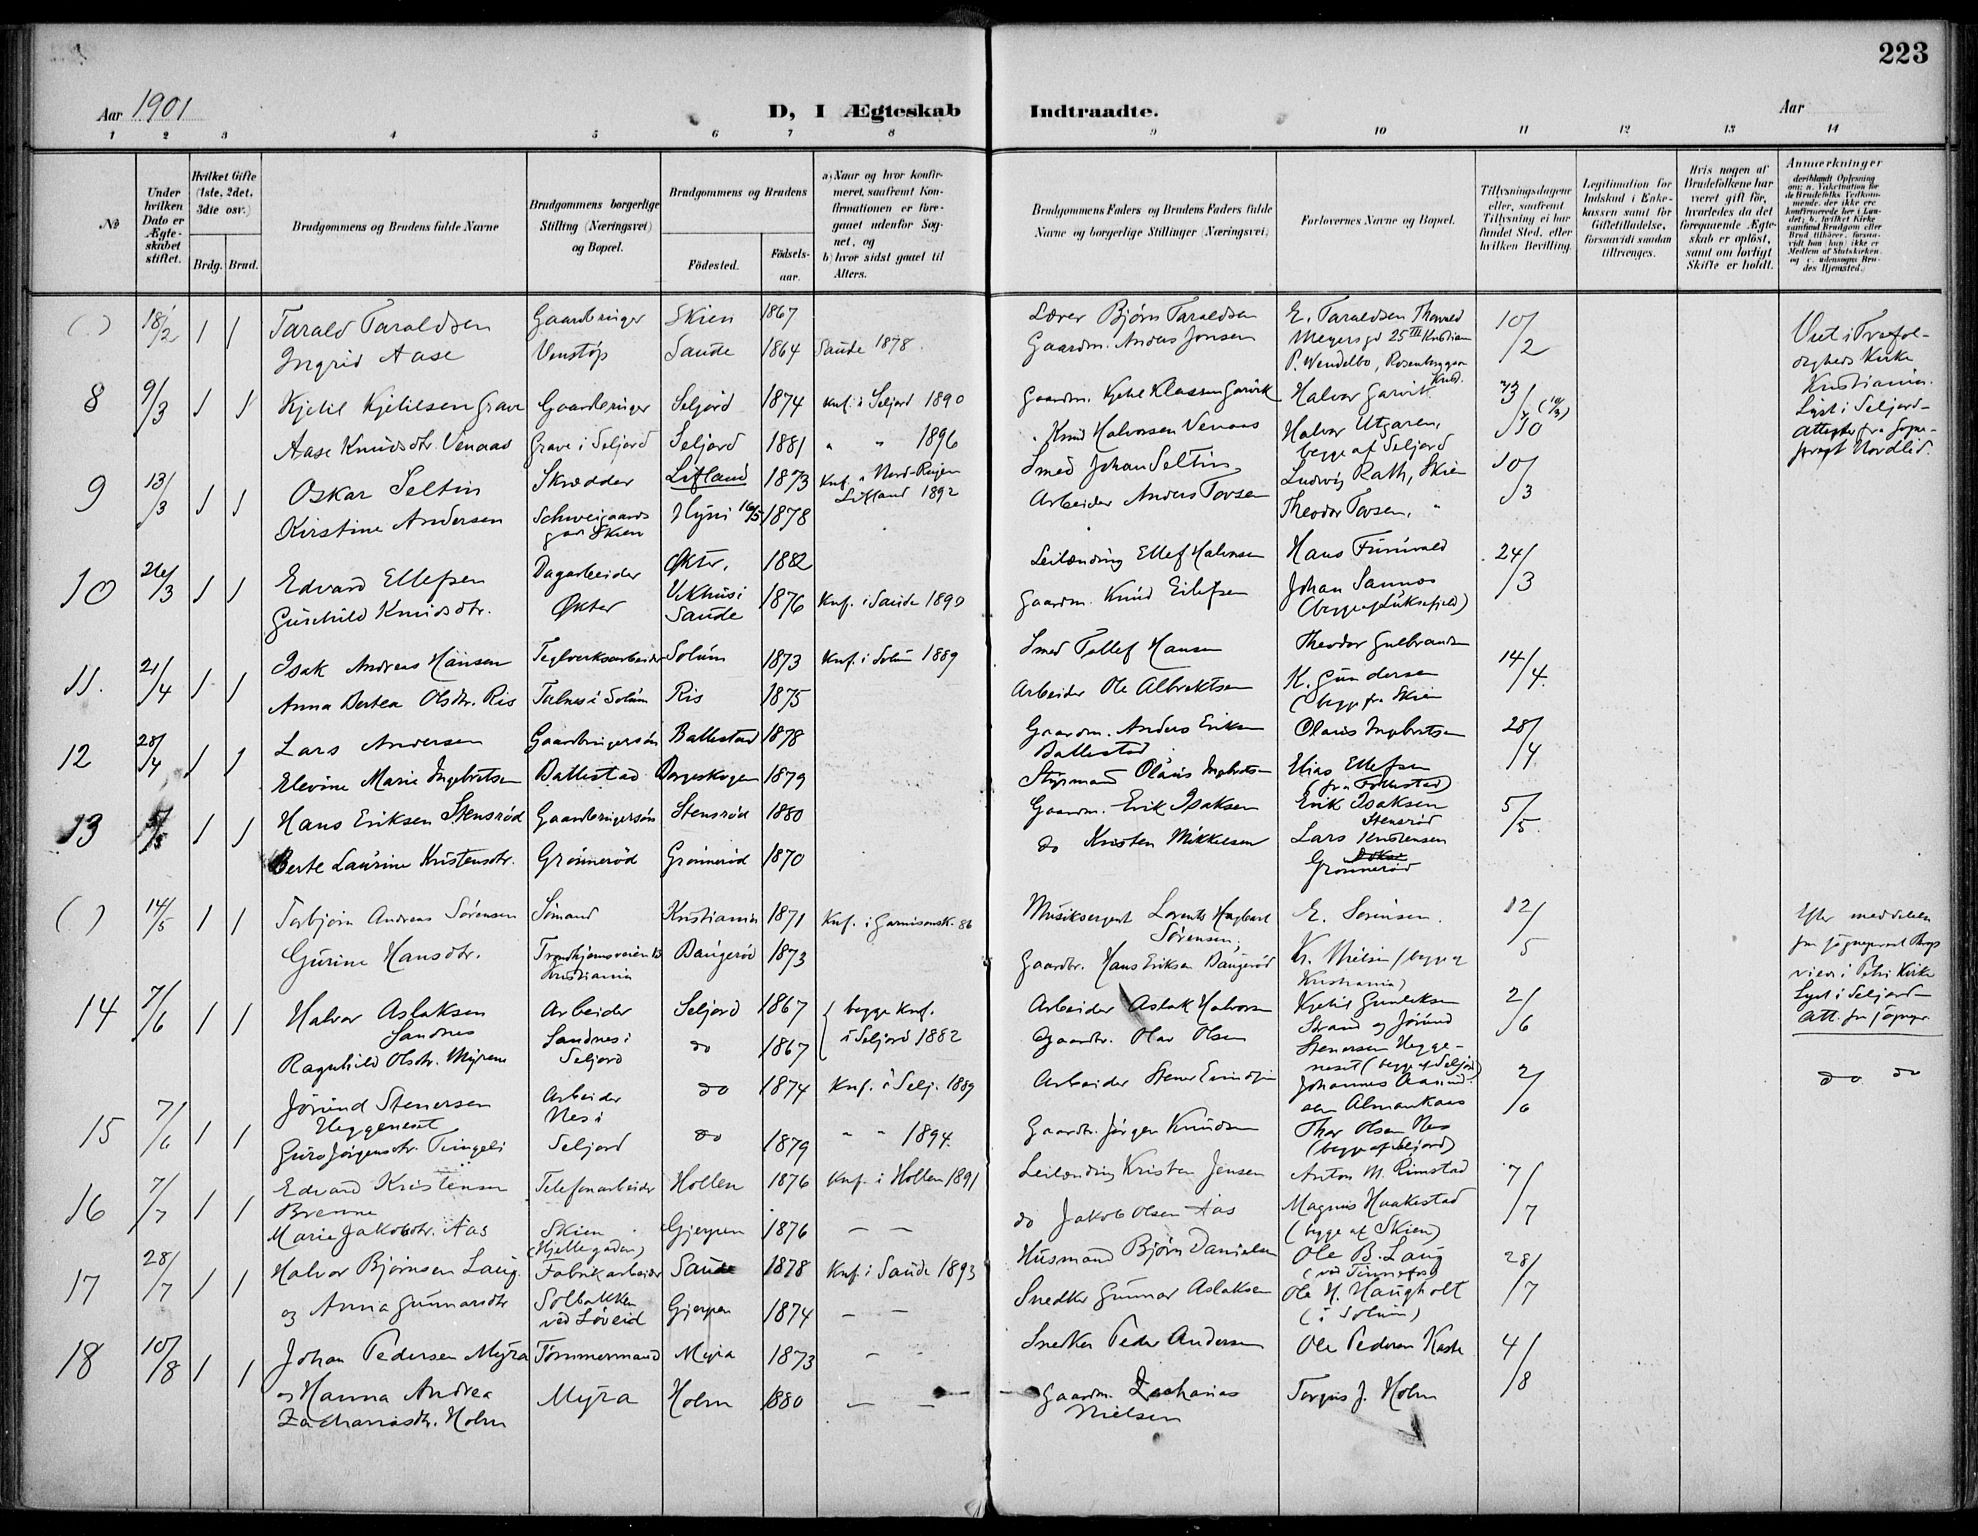 223
Aar 1901
D, I Ægteskab Indtraadte.
Aar
1 2 3 4 5 6 7 8 9 10 11 12 13 14
No
Under hvilken Dato er Ægteskabet stiftet.
Hvilket Gifte (1ste, 2det, 3die osv.)
Brdg. Brud.
Brudgommens og Brudens fulde Navne
Brudgommens borgerlige Stilling (Næringsvei) og Bopæl.
Brudgommens og Brudens
Födested. Födselsaar.
a) Naar og hvor konfirmeret, saafremt Konfirmationen er foregaaet udenfor Sognet, og
b) hvor sidst gaaet til Alters.
Brudgommens Faders og Brudens Faders fulde Navne og borgerlige Stillinger (Næringsvei)
Forlovernes Navne og Bopæl.
Tillysningsdagene eller, saafremt Tillysning ei har fundet Sted, efter hvilken Bevilling.
Legitimation for Indskud i Enkekassen samt for Giftetilladelse, forsaavidt saadan tiltrænges.
Hvis nogen af Brudefolkene har været gift før, hvorledes da det foregaaende Ægteskab er oplöst, samt om lovligt Skifte er holdt.
Anmærkninger
( ) 18/2 1 1 Tarald Taraldsen Gaardbruger Skien 1867 Lærer Björn Taraldsen E. Taraldsen Thorvald 10/2
Ingrid Aase Venstöp Saude 1864 Saude 1878 Gaardm. Anders Jonsen Meyersgd 25 III Kristiania
P. Wendelbo, Rosenborggn
Viet i Trefoldigheds Kirke Kristiania.
8 9/3 1 1 Kjetil Kjetilsen Grave Gaardbruger Seljord 1874 Knf. i Seljord 1890 Gaardm. Kjetil Klassen Garvik Halvor Garvik 3/
Aase Knudsdtr. Venaas Grave i Seljord Seljord 1881 " " 1896 Knud Halvorsen Venaas Halvor Utgaren, begge af Seljord
Lyst i Seljord
9 13/3 1 1 Oskar Seltin Skrædder Lifland 1873 Knf. i Nord-Rujen Lifland 1892 Smed Johan Seltin, Ludvig Rath, Skien 10/3
Kirstine Andersen Schweigaards gd Skien Hyni 16/5 1878 Arbeider Anders Tovsen Theodor Tovsen, "
10 26/3 1 1 Edvard Ellefsen Dagarbeider Økter, 1882 Leilænding Ellef Halvorsen Hans Furuvald 24/3
Gunhild Knudsdtr. Økter Vekhus i Saude 1876 Knf. i Saude 1890 Gaardm. Knud Eilefsen Johan Sannes (begge af Luksefjeld)
11. 21/4 1 1 Isak Andreas Hansen Teglverksarbeider Solum 1873 Knf. i Solum 1889 Smed Tollef Hansen Theodor Gulbrandsen 14/4.
Anna Bertea Olsdtr. Ris Tolnes i Solum Ris 1875 Arbeider Ole Albrektsen K. Gundersen (begge fra Skien
12 28/4 1 1 Lars Andersen Gaardbrugersön Ballestad 1878 Gaardm. Anders Eriksen Ballestad Olaus Ingebretsen 28/4
Elevine Marie Ingebretsen Ballestad Borgeskogen 1879 Styrmand Olaus Ingebretsen Elias Ellefsen
13 5/5 1 1 Hans Eriksen Stensröd Gaardbrugersön Stensröd 1880 Gaardm. Erik Isaksen Erik Isaksen Stensröd 5/5.
Berte Laurine Kristensdtr. Grönneröd Grönneröd 1870 do Kristen Mikkelsen Lars Kristensen Grönneröd
( ) 14/5 1 1 Torbjörn Andreas Sörensen Sömand Kristiania 1871 Knf. i Garnisonsk. 86 Musiksergent Lorents Hagbart Sörensen, E. Sörensen. 12/5
Gurine Hansdtr. Trondhjemsveien 13 Kristiania Baugeröd 1873 Gaardbr. Hans Eriksen Baugeröd Kr. Nielsen (begge af Kristiania)
Efter meddelelse fra sognepræst
viede i Petri Kirke
14 7/6 1 1 Halvor Aslaksen Sandnes Arbeider Seljord 1867 begge Knf. i Seljord 1882 Arbeider Aslak Halvorsen Kjetil Gunleksen Strand og Jörund 2/6
Ragnhild Olsdtr. Myrene Sandnes i Seljord do 1867 Gaardbr. Olav Olsen Stenersen Heggeneset (begge af Seljord)
Lyst i Seljord
15 7/6 1 1 Jörund Stenersen Heggeneset Arbeider do 1874 Knf. i Selj. 1889 Arbeider Stener Johannes 2/6
Guro Jörgensdtr. Tinngeli Nes i Seljord do 1879 " " 1894. Gaardbr. Jörgen Knudsen Thor Olsen Nes (begge af Seljord)
do do
16 7/7 1 1 Edvard Kristensen Brenne Telefonarbeider Hollen 1876 Knf. i Hollen 1891 Leilænding Kristen Jensen Anton M. Rimstad 7/7
Marie Jakobsdtr. Aas Skien (Hjellegaden) Gjerpen 1876 — — do Jakob Olsen Aas Magnus Haakestad (begge af Skien)
17 28/7 1 1 Halvor Björnsen Laug. Fabrikarbeider Saude 1878 Knf. i Saude 1893 Husmand Björn Danielsen Ole B. Laug (ved Tinnefos) 28/7
og Anna Gunnarsdtr Solbakken ved Löveid Gjerpen 1874 — — Snedker Gunnar Aslaksen Ole H. Haugholt (i Solum)
18 10/8 1 1 Johan Pedersen Myra Tömmermand Myra 1873 - - Snedker Peder Andersen Ole Pedersen Kaste 4/8
og Hanna Andrea Zachariasdtr. Holm Myra Holm 1880 — — Gaardm. Zacharias Nielsen Torgus J. Holm